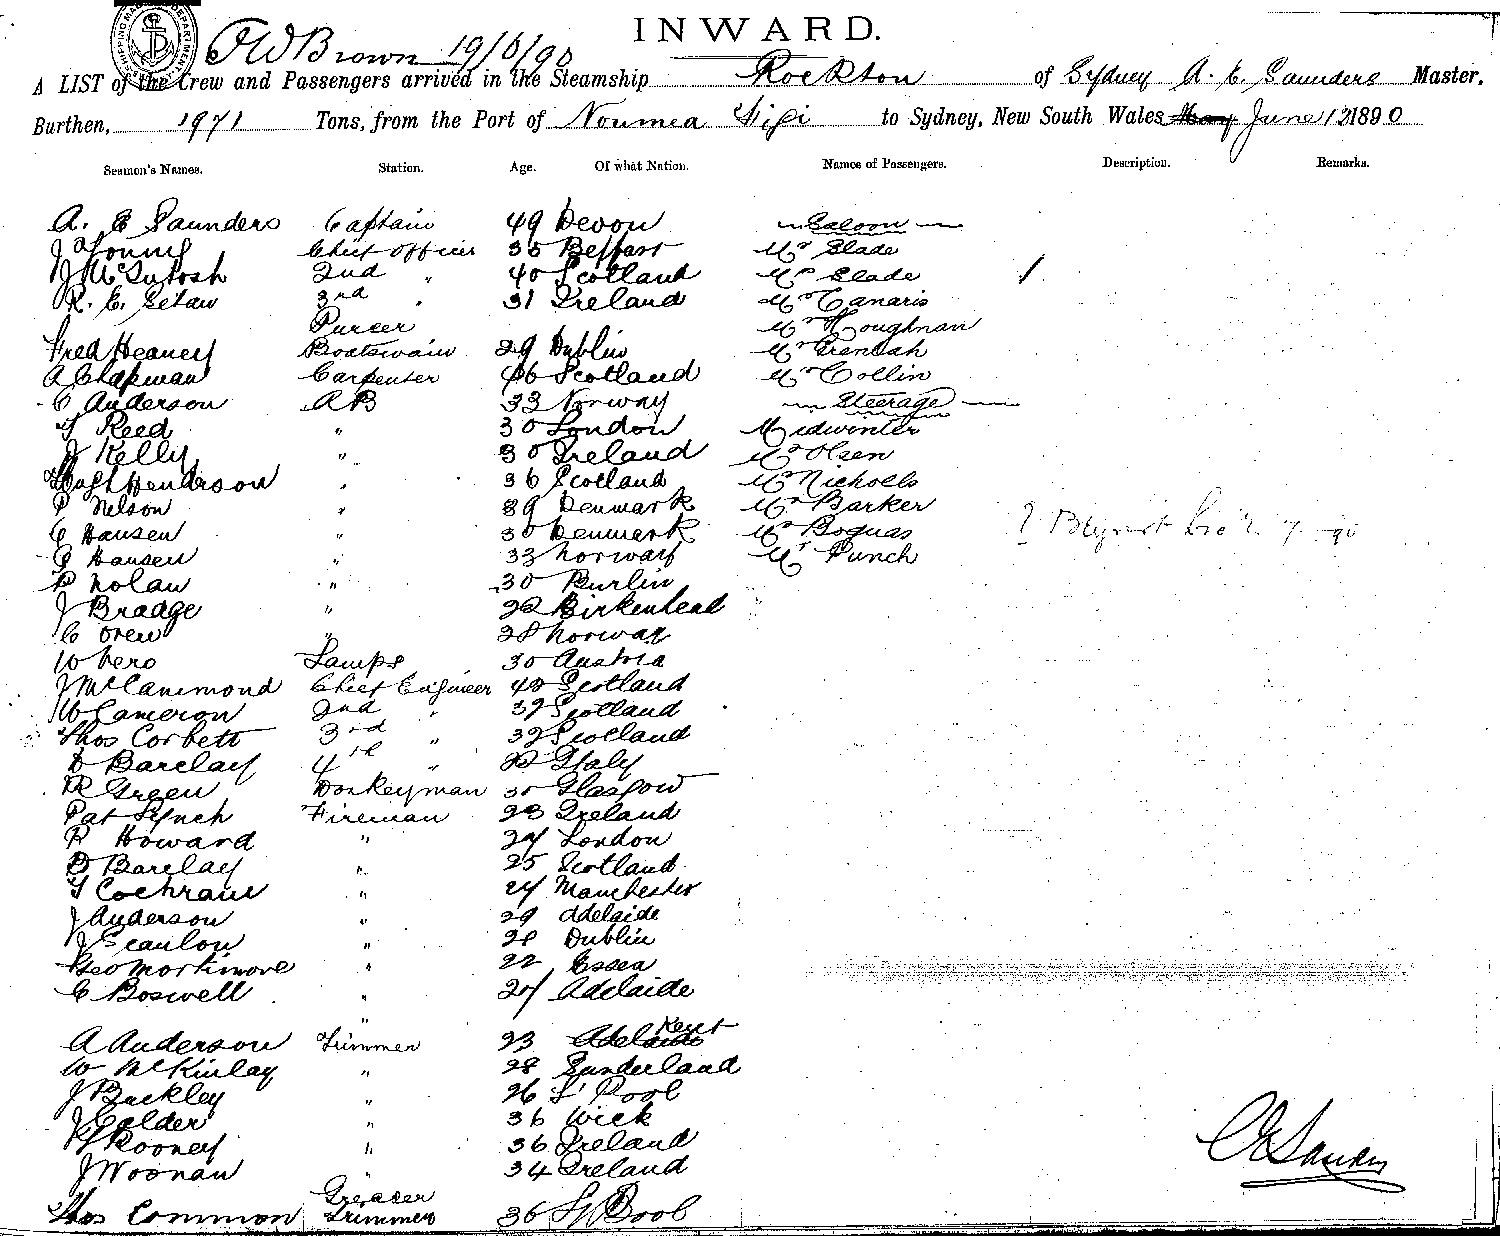 INWARD.
F W Brown 19/6/90
A LIST of the Crew and Passengers arrived in the Steamship Rockton of Sydney A. E. Saunders Master,
Burthen, 1971 Tons, from the Port of Noumea Fiji to Sydney, New South Wales May June 12 1890
Seamen's Names. Station. Age. Of what Nation. Names of Passengers. Description. Remarks.
A. E Saunders Captain 49 Devon Saloon
J Young Chief Officer 35 Belfast Mr Slade
J McIntosh 2nd " 40 Scotland Mr Slade
R. E. 3rd " 31 Ireland Mr Canaris
Purser Mr Houghnan
Fred Heaney Boatswain 29 Dublin Mr
A Chapman Carpenter 46 Scotland Mr Collin
C Anderson AB 33 Norway Steerage
T Reed " 30 London Midwinter
J Kelly " 30 Ireland Mr Olsen
Hugh Henderson " 36 Scotland Mr Nicholls
P Nelson " 39 Denmark Mr Barker
C Hansen " 30 Denmark Mr Boguas
C Hansen " 33 Norway Mr Punch
P Nolan " 30 Durlin
J Bradge " 22 Birkenhead
C Oren " 28 Norway
W Vero Lamps 30 Austria
J McCammond Chief Engineer 42 Scotland
W Cameron 2nd " 32 Scotland
Thos Corbett 3rd " 32 Scotland
D Barclay 4th " 22 Italy
R Green Donkeyman 30 Glasgow
Pat Lynch Fireman 23 Ireland
R Howard " 27 London
D Barclay " 25 Scotland
T Cochrane " 24 Manchester
J Anderson " 29 Adelaide
J Scanlon " 28 Dublin
Geo Mortimore " 22 Essex
C Boswell " 24 Adelaide
"
A Anderson Trimmer 23 Adelaide Kent
W McKinlay " 28 Sunderland
J Buckley " 26 L'Pool
J Calder " 36 Wick
T Rooney " 36 Ireland
J Woonan " 34 Ireland
Greaser
Thos Common Trimmer 36 L'Pool
A E Saunders